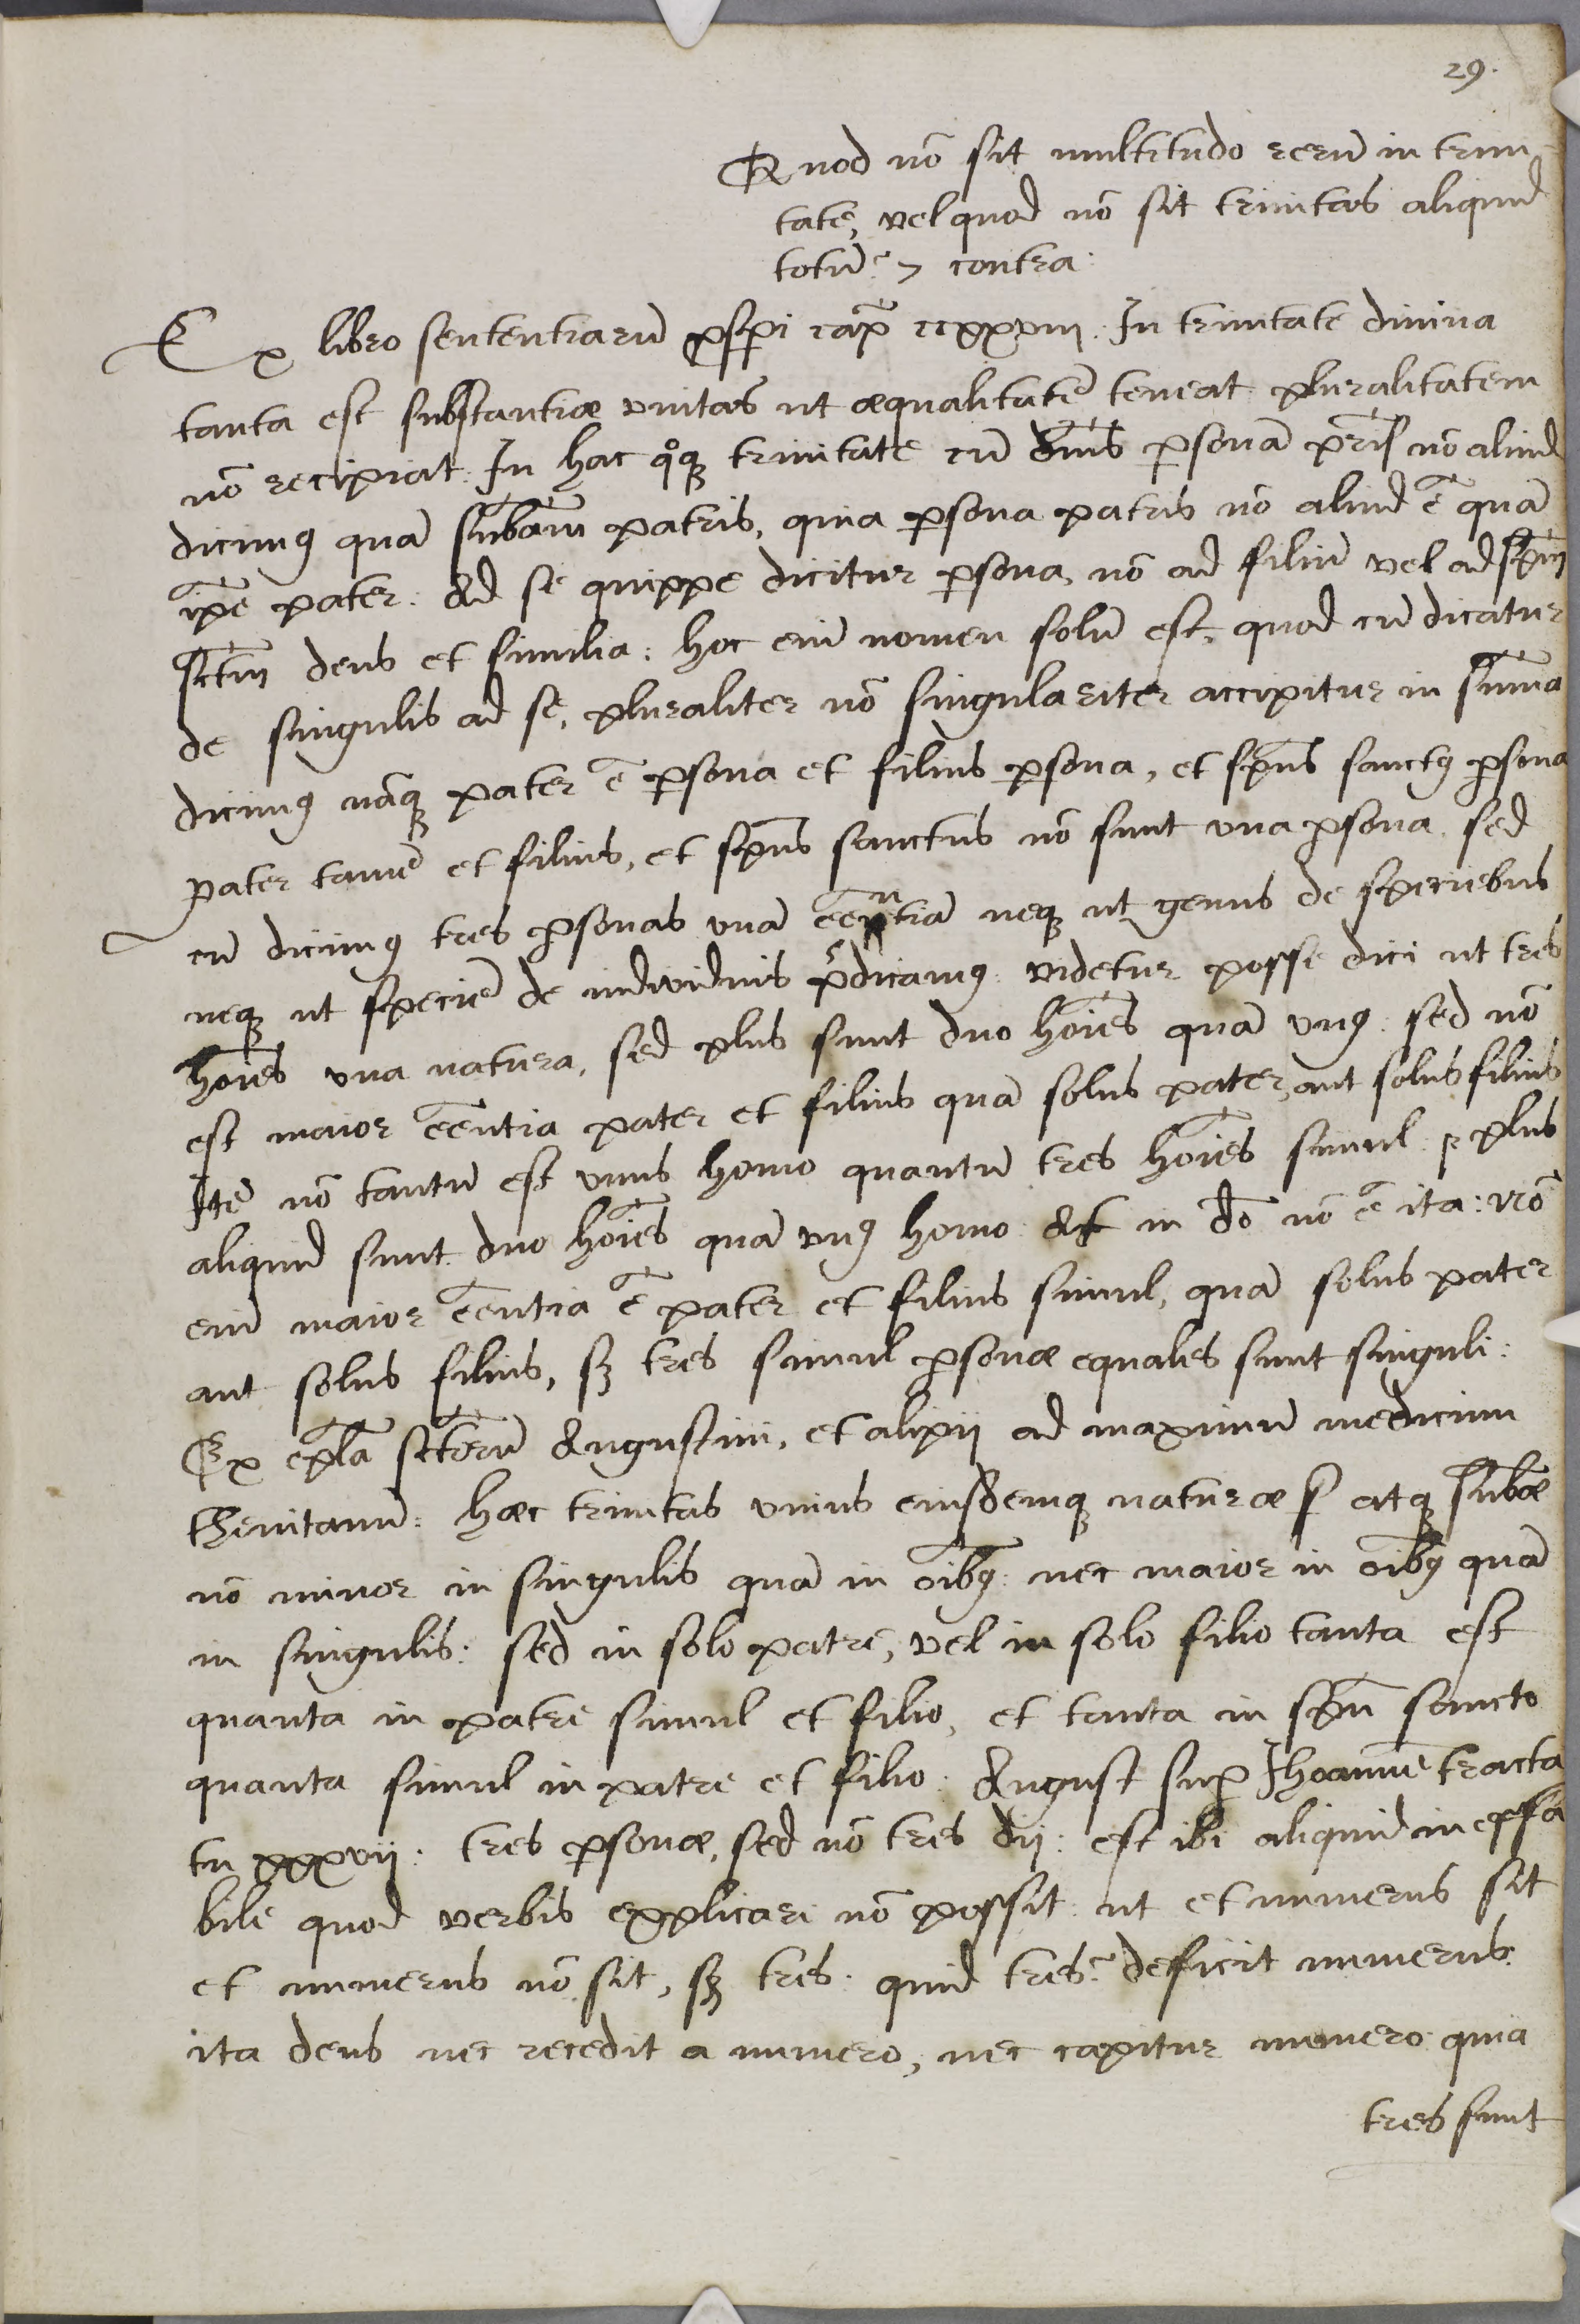 29.
Quod nō sit multitudo rerū in trini-
tate, vel quod nō sit trinitas aliquid
totū: & contra:
Ex libro sententiarū ꝓsꝑi cap̄ ccxxxviii. In trinitate diuina
tanta est substantiæ vnitas ut æqualitatē teneat pluralitatem
nō recipiat: In hac qͦqꝫ trinitate cū dicimꝰ ꝑsonā pr̄is nō aliud
dicimꝰ quā sub̄am patris, quia ꝑsona patris nō aliud ē quā
ip̄e pater: Ad se quippe dicitur ꝑsona, nō ad filiū vel ad sp̄m
sctm̄ deus et similia: hoc eni̅ nomen solū est, quod cū dicatur
de singulis ad se, pluraliter nō singulariter accipitur in sum̄a
dicimꝰ nāqꝫ pater ē ꝑsona et filius ꝑsona, et sp̄us sanctꝰ ꝑsona
pater tamē et filius, et sp̄us sanctus nō sunt vna ꝑsona. sed
cū dicimꝰ tres ꝑsonas vnā eēntiā neqꝫ ut genus de speciebus
neqꝫ ut speciē de indiuiduis p̄dicamꝰ. videtur posse dici ut tres
hoīes vna natura, sed plus sunt duo hoīes quā vnꝰ: sed nō
est maior eēntia pater et filius quā solus pater, aut solus filius
Itē nō tantū est vnus homo quantū tres hoīes simul: & plus
aliquid sunt duo hoīes quā vnꝰ homo: At in dō nō ē ita: nō
eni̅ maior eēntia ē pater et filius simul, quā solus pater
aut solus filius, sꝫ tres simul ꝑsonæ equales sunt singuli:
Ex ep̄la sctōrū Augustini, et alipii ad maximū medicum
thenitanū: hæc trinitas vnius eiusdemqꝫ naturæ atqꝫ sub̄æ
nō minor in singulis quā in oībꝰ: nec maior in oībꝰ quā
in singulis: sed in solo patre, vel in solo filio tanta est
quanta in patre simul et filio, et tanta in sp̄u sancto
quanta simul in patre et filio: August suꝑ Ihoannē tracta
tu xxxvii: tres ꝑsonæ, sed nō tres dij: est ibi aliquid ineffa
bile quod verbis explicari nō possit: ut et numerus sit
et numerus nō sit, sꝫ tres: quid tres? deficit numerus:
ita deus nec recedit a numero, nec capitur numero: quia
tres sunt